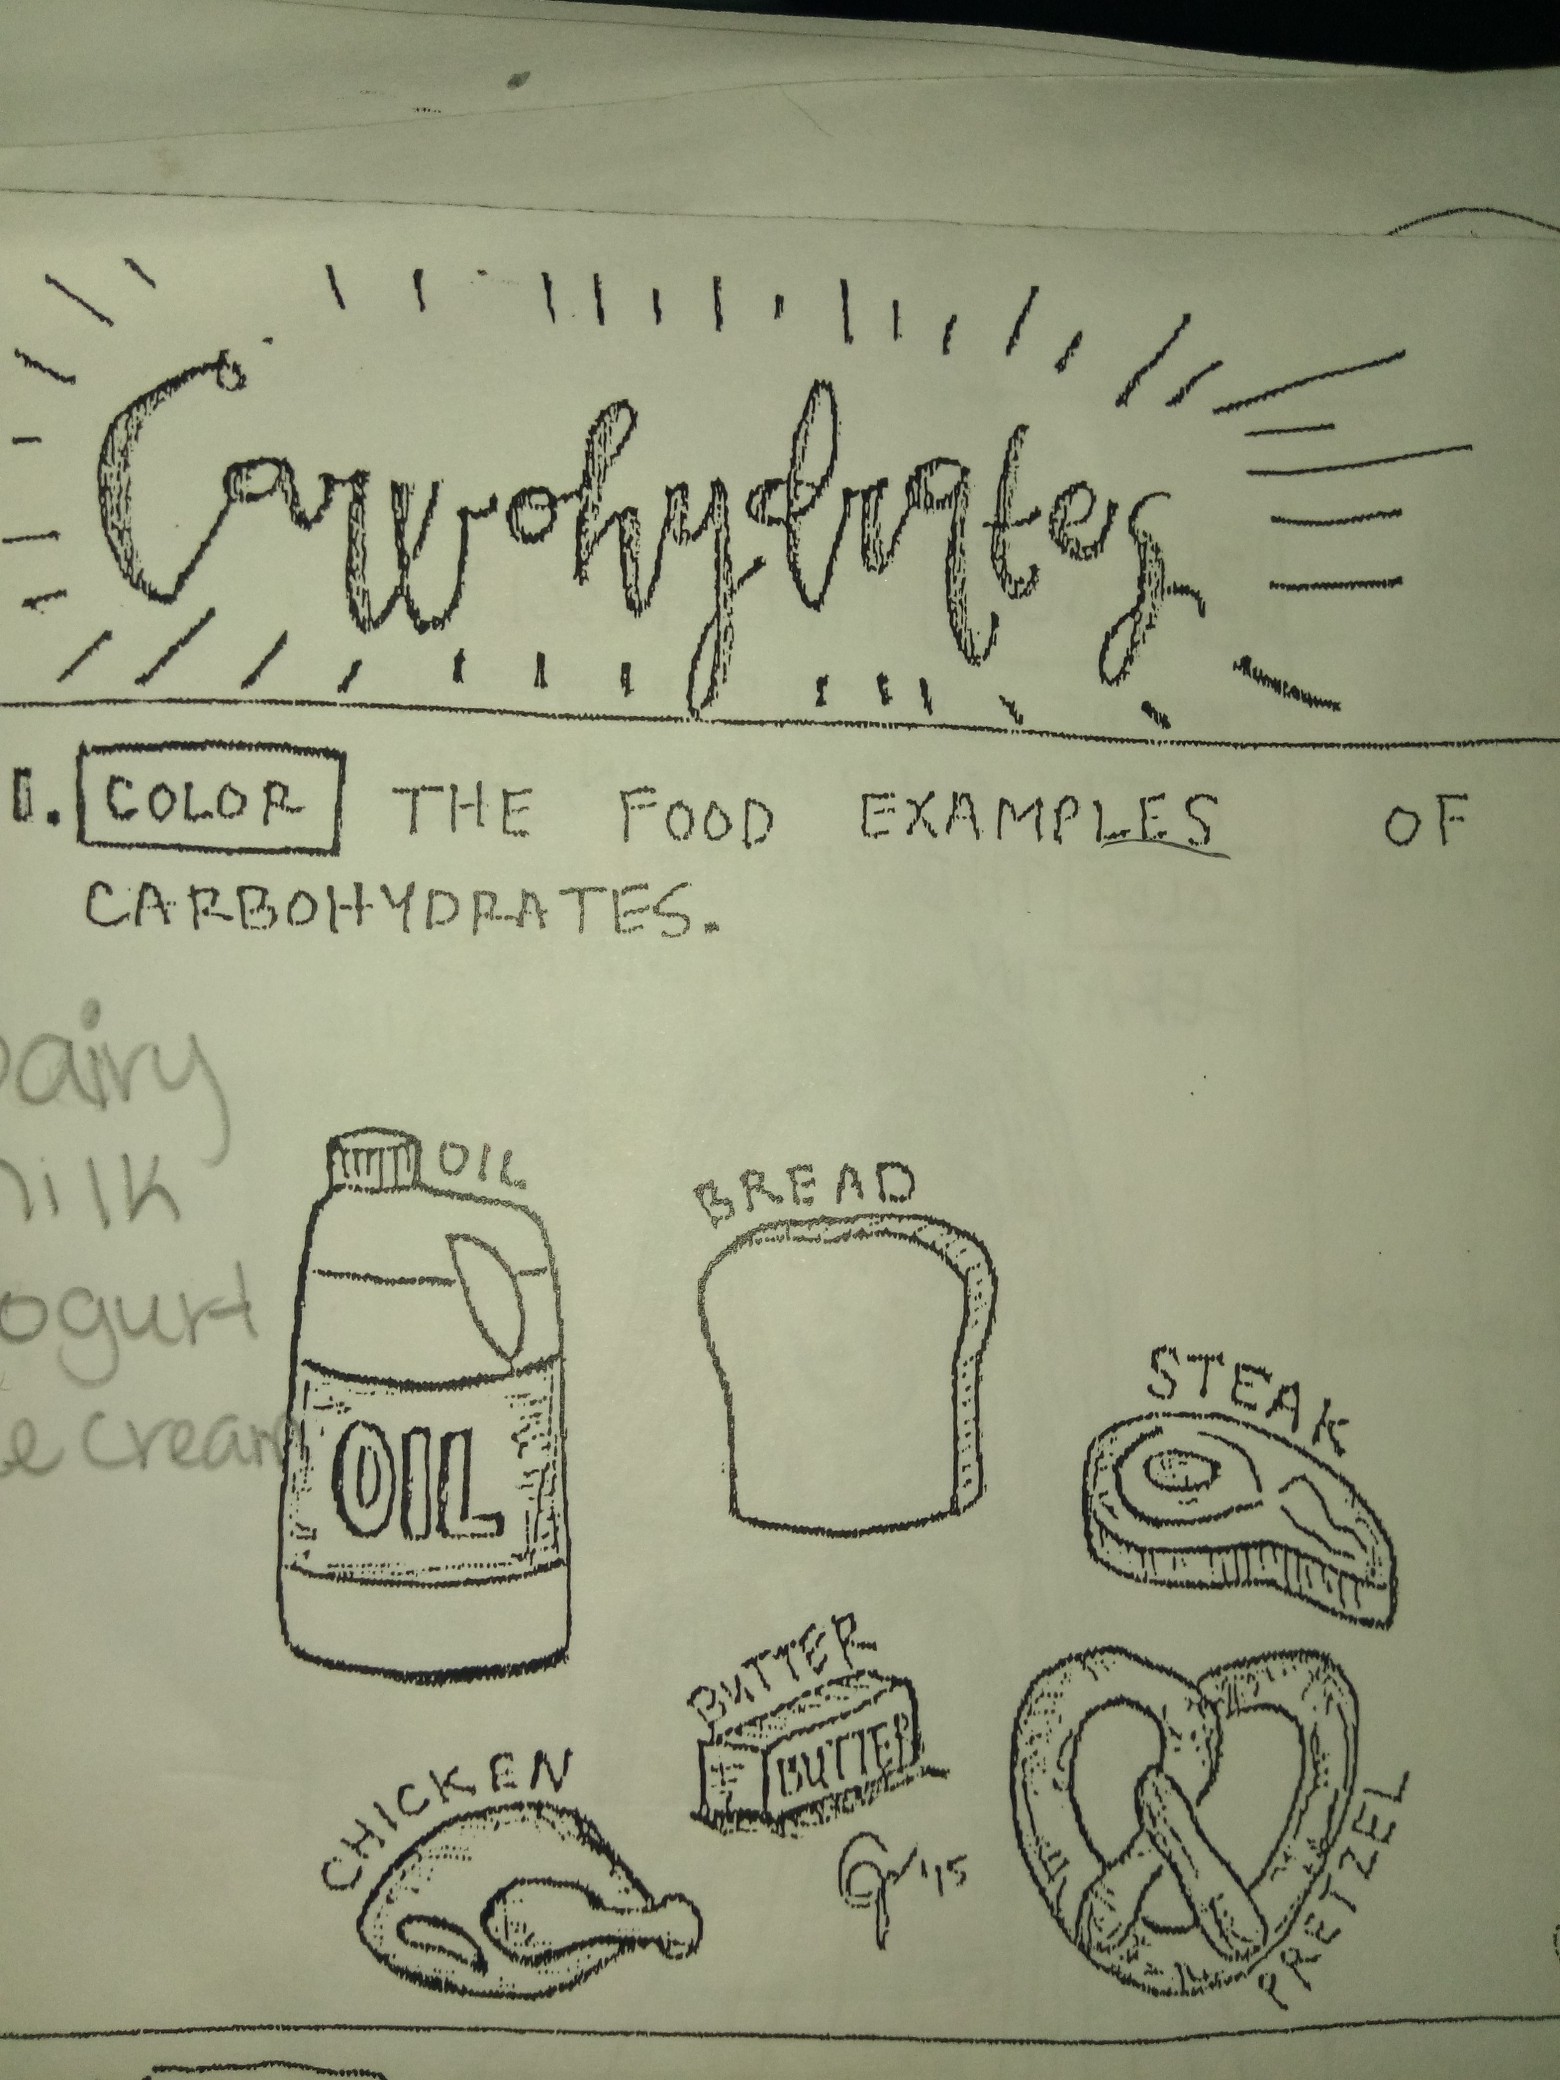 Carbohydrates
1. COLOR THE FOOD EXAMPLES OF
CARBOHYDRATES.
Dairy
milk
ogurt
e cream
OIL
OIL
BREAD
STEAK
BUTTER
BUTTER
CHICKEN
PRETZEL
'15